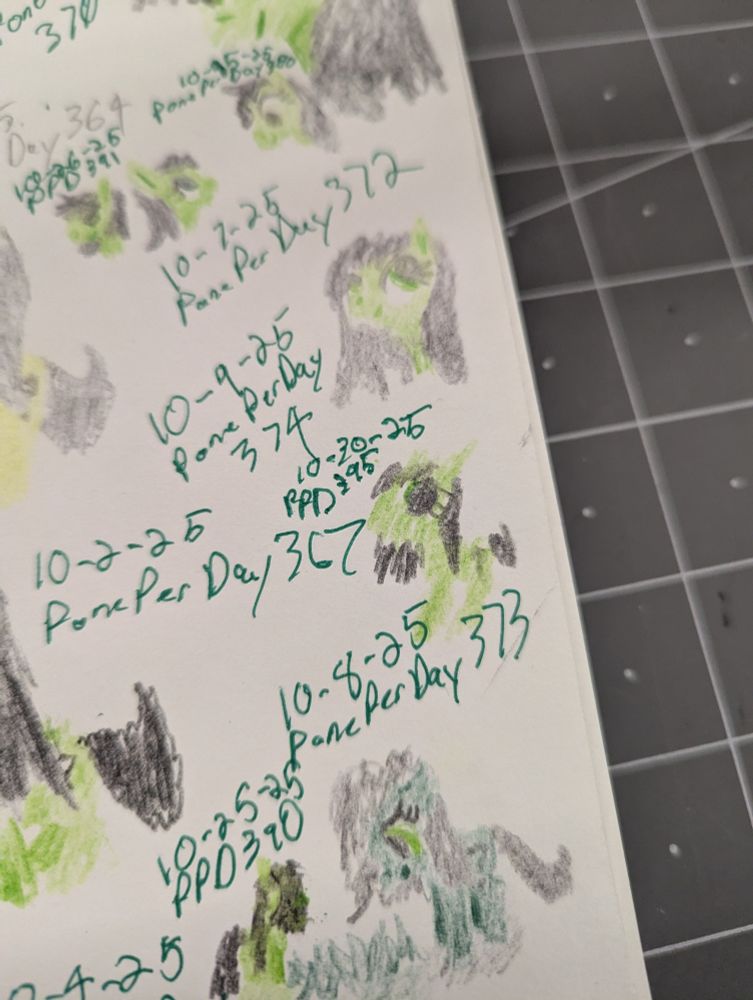 370
10-15-25
Pone Per Day 380
Day 364
10-26-25
PPD 391
10-7-25
Pone Per Day 372
10-9-25
Pone Per Day
374
10-30-25
PPD 395
10-2-25
Pone Per Day 367
10-8-25
Pone Per Day 373
10-25-25
PPD 390
-4-25